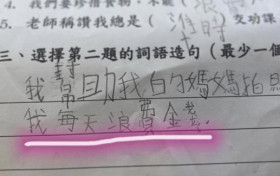 4. 我們要珍惜食物,不能(浪費
5. 老師稱讚我總是(準時)交功課
三、選擇第二題的詞語造句(最少一個
我幫助我白勺媽媽拍
我每天浪費金錢.